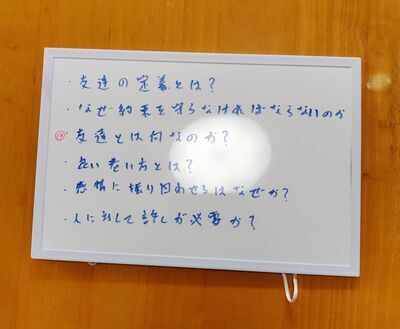 ・友達の定義とは?
・なぜ約束を守らなければならないのか
・友達とは何なのか?
・良い老い方とは?
・感情に振り回わせるはなぜか?
・人に対して許しが必要か?